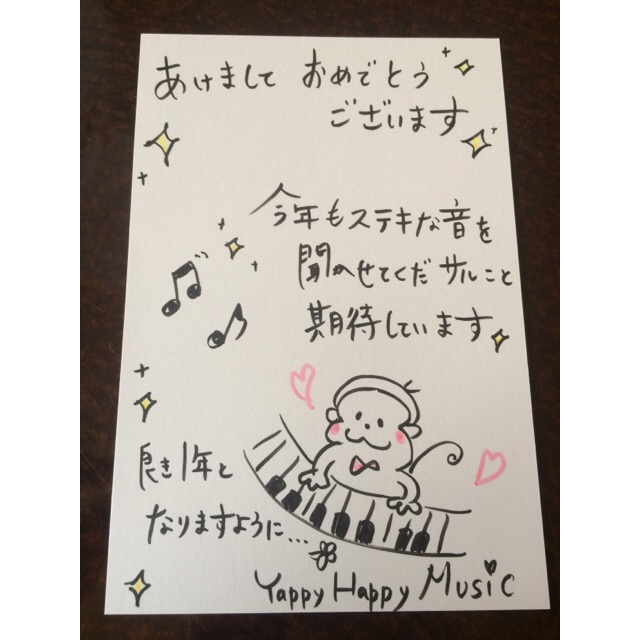 あけまして おめでとう
ございます
今年もステキな音を
聞かせてくだサルこと
期待しています
良き1年と
なりますように...
Yappy Happy Music